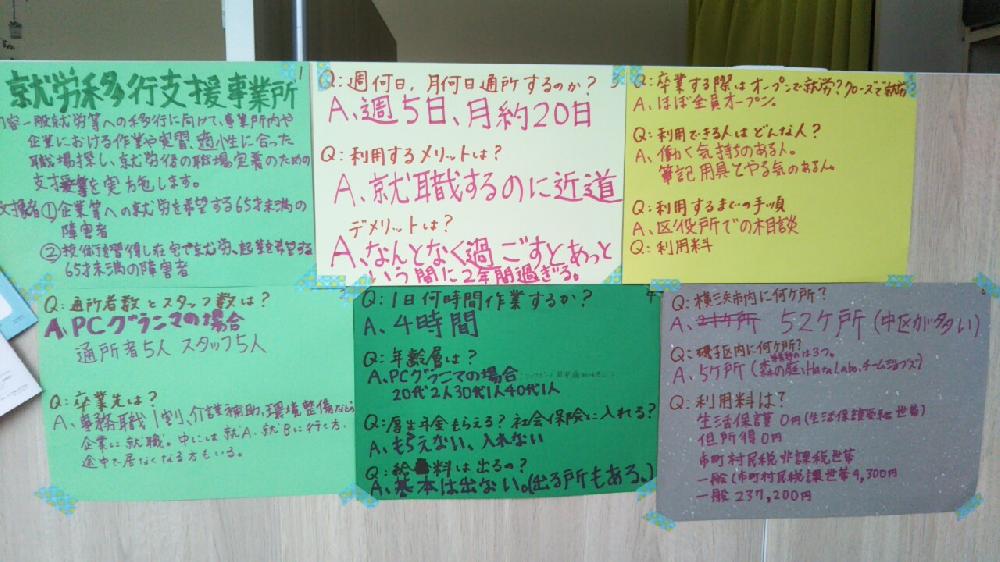 就労移行支援事業所
内容 一般就労等への移行に向けて、事業所内や
企業における作業や実習、適性に合った
職場探し、就労後の職場定着のための
支援業を実施します。
支援者①企業等への就労を希望する65才未満の
障害者
②技術を習得し在宅で就労、起業を希望する
65才未満の障害者
Q:週何日、月何日通所するのか?
A、週5日、月約20日
Q:利用するメリットは?
A、就職するのに近道
デメリットは?
A、なんとなく過ごすとあっと
いう間に2年間過ぎる。
Q:卒業する際はオープンで就労?クローズで就労
A、ほぼ全員オープン。
Q:利用できる人はどんな人?
A、働く気持ちのある人。
筆記用具でやる気のある人
Q:利用するまでの手順
A、区役所での相談
Q:利用料
Q:通所者数とスタッフ数は?
A、PCグラニマの場合
通所者5人 スタッフ5人
Q:卒業先は?
A、事務職1割、介護補助、環境整備などの
企業に就職。中には就A、就Bに行く方、
途中で居なくなる方もいる。
Q:1日何時間作業するか?
A、4時間
Q:年齢層は?
A、PCグラニマの場合
20代2人30代1人40代1人
Q:厚生年金もらえる?社会保険に入れる?
A、もらえない、入れない
Q:給料は出るの?
A、基本は出ない。(出る所もある。)
Q:横浜市内に何ケ所?
A、52ケ所(中区が多い)
Q:磯子区内に何ケ所?
は3つ。
A、5ケ所(森の庭、Hana Labo、チームジョブズ)
Q:利用料は?
生活保護 0円(生活保護受給世帯)
低所得0円
市町村民税非課税世帯
一般1市町村民税課世帯9,300円
一般237,200円